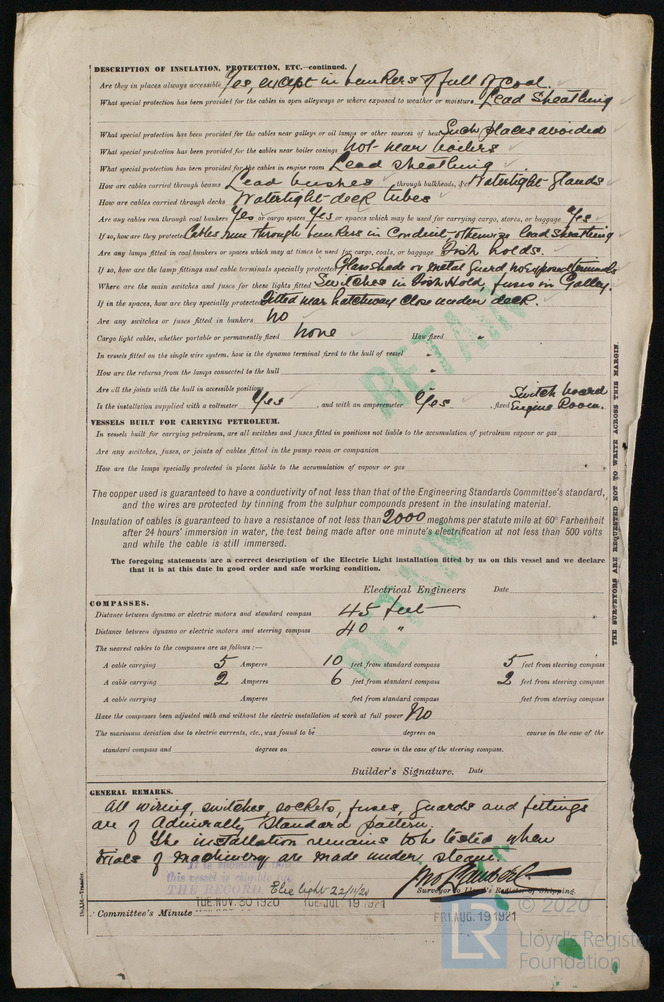 DESCRIPTION OF INSULATION, PROTECTION, ETC.—continued.
Are they in places always accessible Yes, except in bunkers if full of coal.
What special protection has been provided for the cables in open alleyways or where exposed to weather or moisture Lead Sheathing
What special protection has been provided for the cables near galleys or oil lamps or other sources of heat Such places avoided
What special protection has been provided for the cables near boiler casings not near boilers
What special protection has been provided for the cables in engine room Lead sheathing
How are cables carried through beams Lead bushes through bulkheads, &c. Watertight Glands
How are cables carried through decks Watertight deck tubes
Are any cables run through coal bunkers Yes or cargo spaces Yes or spaces which may be used for carrying cargo, stores, or baggage Yes
If so, how are they protected Cables run through bunkers in Conduit otherwise lead sheathing
Are any lamps fitted in coal bunkers or spaces which may at times be used for cargo, coals, or baggage Fish holds.
If so, how are the lamp fittings and cable terminals specially protected Glass shade or metal guard no exposed terminals
Where are the main switches and fuses for these lights fitted Switches in Fish Hold, fuses in Galley.
If in the spaces, how are they specially protected fitted near hatchway close under deck.
Are any switches or fuses fitted in bunkers no
Cargo light cables, whether portable or permanently fixed none How fixed "
In vessels fitted on the single wire system, how is the dynamo terminal fixed to the hull of vessel "
How are the returns from the lamps connected to the hull "
Are all the joints with the hull in accessible positions "
Is the installation supplied with a voltmeter Yes , and with an amperemeter Yes , fixed Switch board Engine Room.
VESSELS BUILT FOR CARRYING PETROLEUM.
In vessels built for carrying petroleum, are all switches and fuses fitted in positions not liable to the accumulation of petroleum vapour or gas
Are any switches, fuses, or joints of cables fitted in the pump room or companion
How are the lamps specially protected in places liable to the accumulation of vapour or gas
The copper used is guaranteed to have a conductivity of not less than that of the Engineering Standards Committee's standard,
and the wires are protected by tinning from the sulphur compounds present in the insulating material.
Insulation of cables is guaranteed to have a resistance of not less than 2000 megohms per statute mile at 60° Farhenheit
after 24 hours' immersion in water, the test being made after one minute's electrification at not less than 500 volts
and while the cable is still immersed.
The foregoing statements are a correct description of the Electric Light installation fitted by us on this vessel and we declare
that it is at this date in good order and safe working condition.
Electrical Engineers Date
COMPASSES.
Distance between dynamo or electric motors and standard compass 45 feet
Distance between dynamo or electric motors and steering compass 40 "
The nearest cables to the compasses are as follows:—
A cable carrying 5 Amperes 10 feet from standard compass 5 feet from steering compass
A cable carrying 2 Amperes 6 feet from standard compass 2 feet from steering compass
A cable carrying Amperes feet from standard compass feet from steering compass
Have the compasses been adjusted with and without the electric installation at work at full power No
The maximum deviation due to electric currents, etc., was found to be degrees on course in the case of the
standard compass and degrees on course in the case of the steering compass.
Builder's Signature. Date
GENERAL REMARKS.
All wiring, switches, sockets, fuses, guards and fittings
are of Admiralty Standard pattern.
The installation remains to be tested when
trials of machinery are made under steam.
It is
this vessel is eligible for
THE RECORD. Elec light 22/11/20
Surveyor to Lloyd's Register of Shipping.
TUE. NOV. 30 1920 TUE. JUL. 19 1921
Committee's Minute
FRI. AUG. 19 1921
THE SURVEYORS ARE REQUESTED NOT TO WRITE ACROSS THIS MARGIN.
RETAIN
RETAIN
LR
© 2020
Lloyd's Register
Foundation